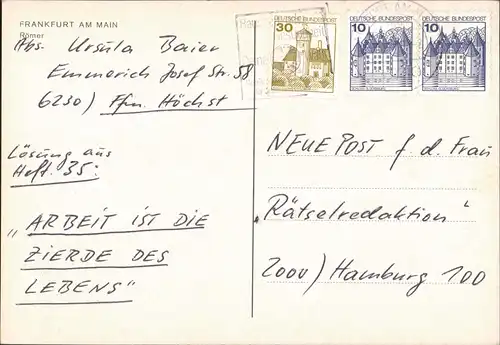 FRANKFURT AM MAIN
Römer
Abs. Ursula Baier
Emmerich Josef Str. 58
6230) Ffm. Höchst
Lösung aus
Heft 35:
„ARBEIT IST DIE
ZIERDE DES
LEBENS"
30 DEUTSCHE BUNDESPOST
10 DEUTSCHE BUNDESPOST
SCHLOSS GLÜCKSBURG
10 DEUTSCHE BUNDESPOST
SCHLOSS GLÜCKSBURG
NEUE POST f. d. Frau
„Rätselredaktion"
2000) Hamburg 100